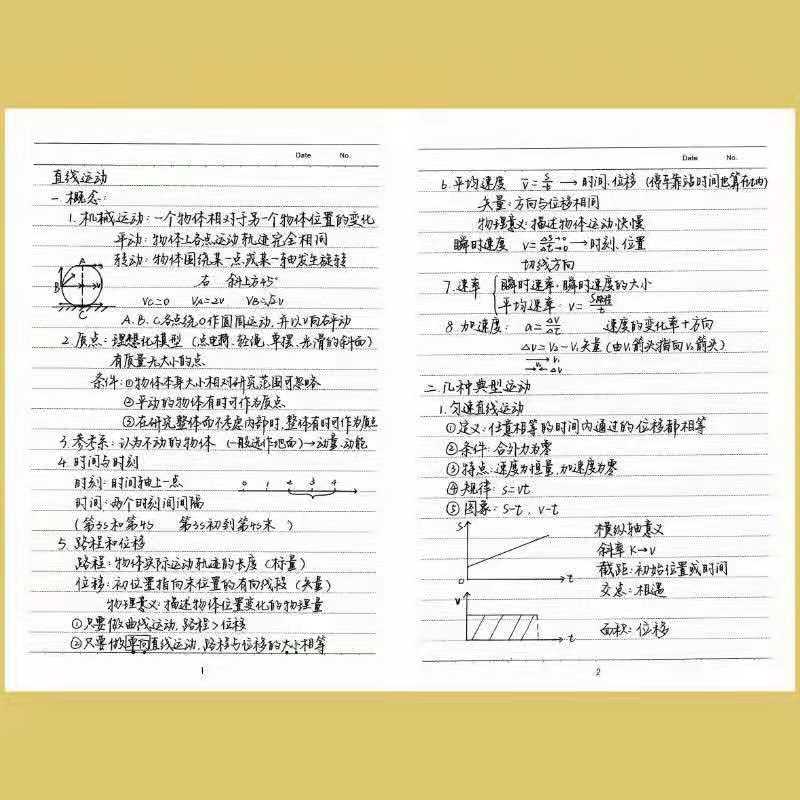 Date No.
直线运动
一.概念:
1.机械运动:一个物体相对于另一个物体位置的变化
平动:物体上各点运动轨迹完全相同
转动:物体围绕某一点或某一轴发生旋转
右 斜上方45°
Vc=0 VA=2V VB=√2V
A.B.C各点绕O作圆周运动,并以V向右平动
A
B
V
C
2.质点:理想化模型(点电荷.轻绳.单摆.光滑的斜面)
有质量无大小的点
条件:①物体本身大小相对研究范围可忽略
②平动的物体有时可作为质点
③在研究整体而不考虑内部时,整体有时可作为质点
3.参考系:认为不动的物体(一般选作地面)→动量.动能
4.时间与时刻
时刻:时间轴上一点
0 1 2 3 4
时间:两个时刻间间隔
(第3s和第4s 第3s初到第4s末 )
5.路程和位移
路程:物体实际运动轨迹的长度(标量)
位移:初位置指向末位置的有向线段(矢量)
物理意义:描述物体位置变化的物理量
①只要做曲线运动,路程>位移
②只要做单向直线运动,路程与位移的大小相等
1
Date No.
6.平均速度 v̄=s/t→时间.位移(停车靠站时间也算在t内)
矢量:方向与位移相同
物理意义:描述物体运动快慢
瞬时速度 v=Δs→0/Δt→0→时刻.位置
切线方向
7.速率 瞬时速率:瞬时速度的大小
平均速率:v=s路程/t
8.加速度: a=ΔV/Δt 速度的变化率+方向
ΔV=V₂-V₁矢量(由V₁箭头指向V₂箭头)
V₁
V₂ ΔV
二.几种典型运动
1.匀速直线运动
①定义:任意相等的时间内通过的位移都相等
②条件:合外力为零
③特点:速度为恒量,加速度为零
④规律:s=vt
⑤图象:s-t,v-t
S
0
t
横纵轴意义
斜率K→V
截距:初始位置或时间
交点:相遇
V
t
面积:位移
2